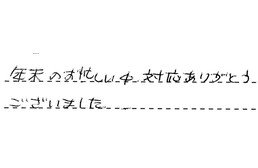 年末のお忙しい中、対応ありがとう
ございました